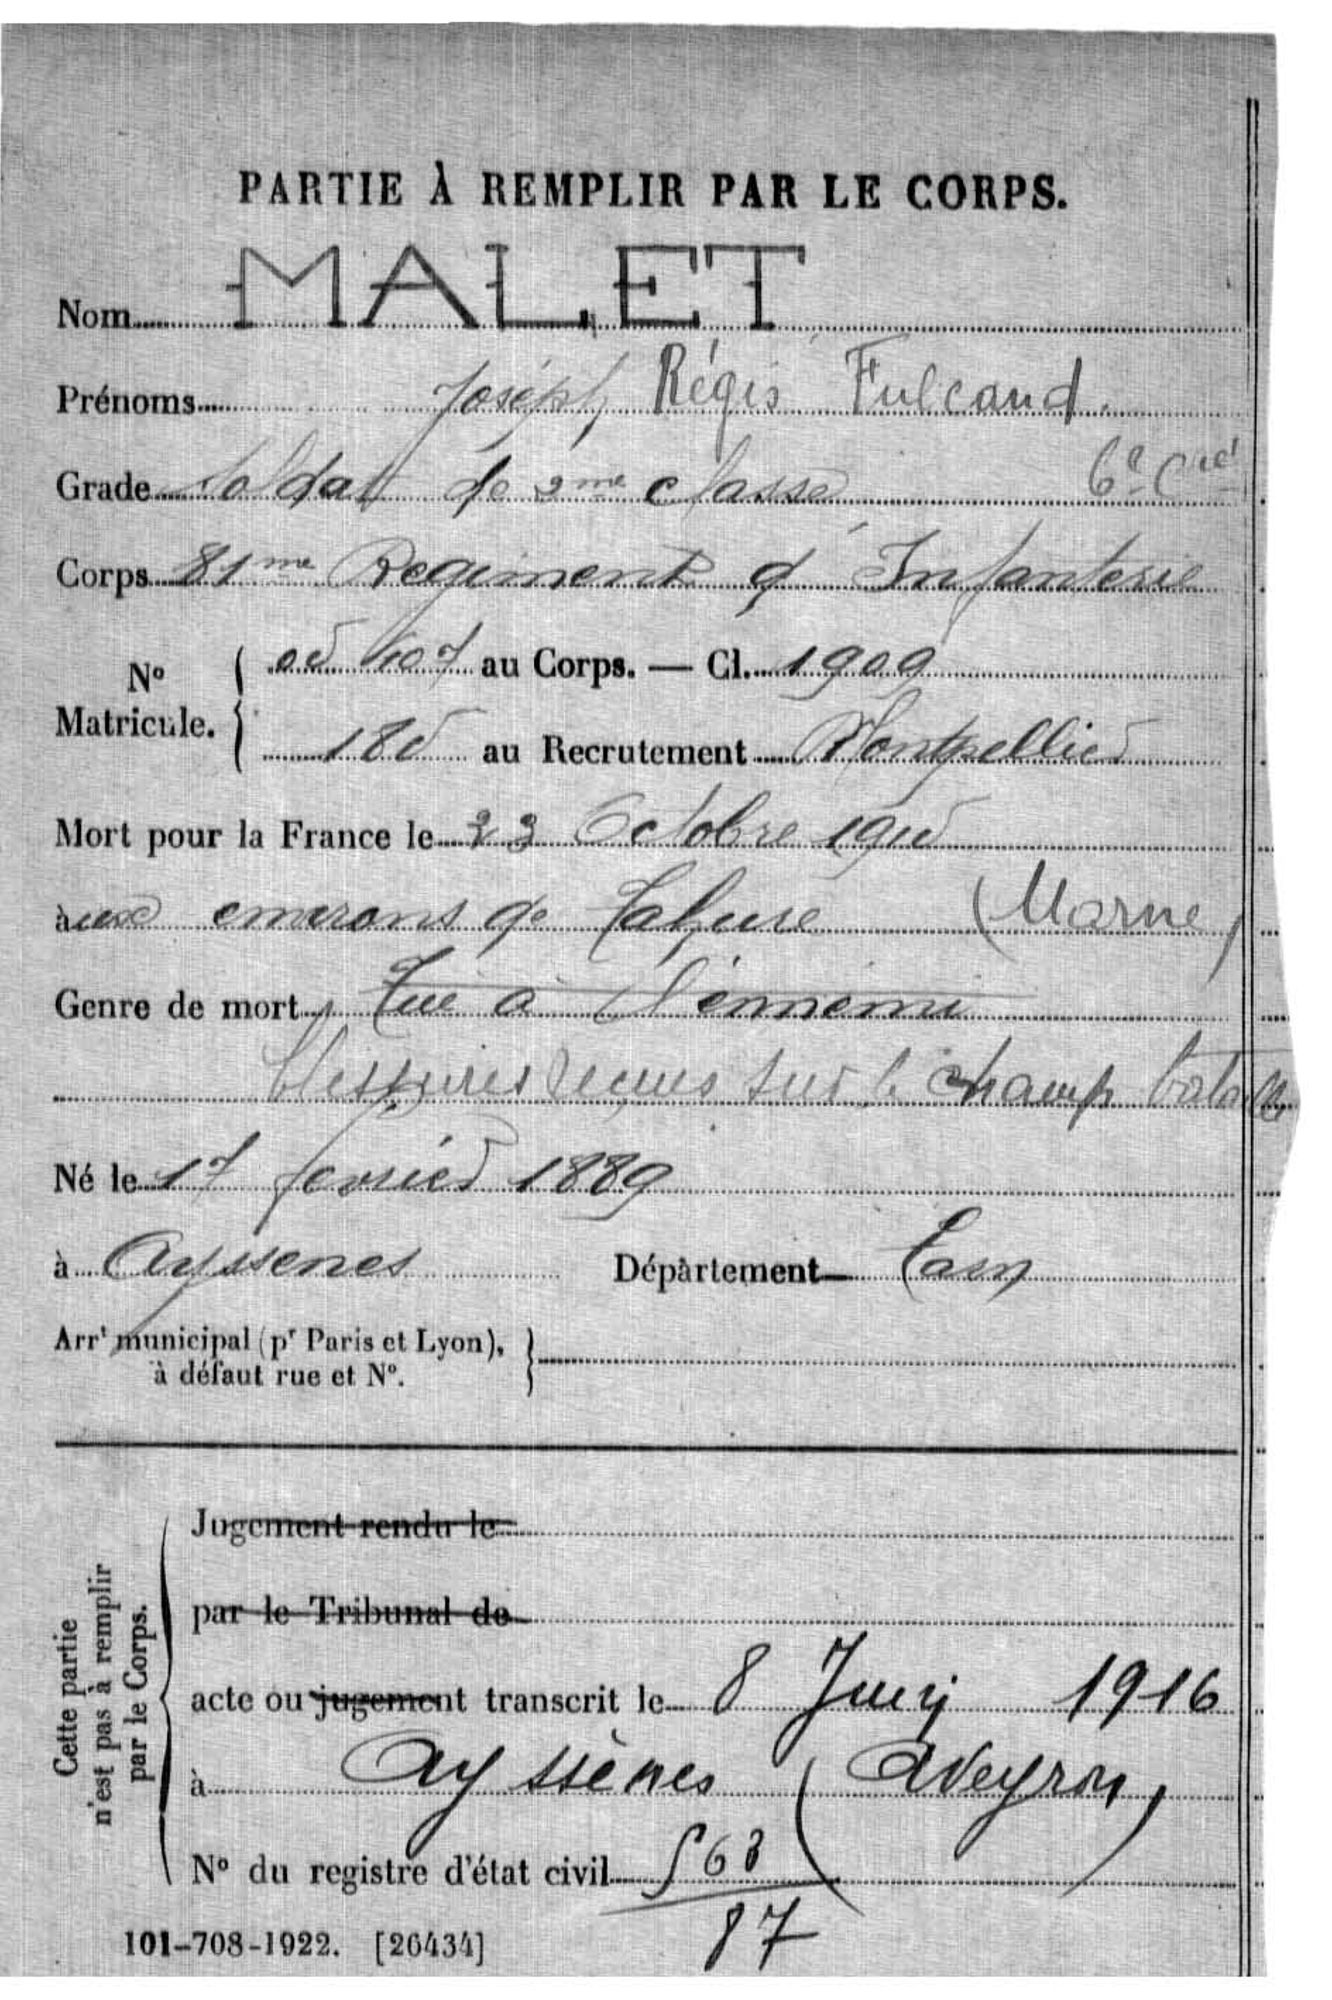 PARTIE À REMPLIR PAR LE CORPS.
Nom MALET
Prénoms Joséph Régis Fulcand.
Grade Soldat de 2me classe 6e Cie
Corps 81me Regiment d'Infanterie
No Matricule. au Corps. — Cl. 1909
185 au Recrutement Montpellier
Mort pour la France le 23 Octobre 1915
à aux environs de Tahure (Marne)
Genre de mort Tué à l'ennemi
blessures reçues sur le champ bataille
Né le 17 fevrier 1889
à Ayssenes Département Tarn
Arrt municipal (pr Paris et Lyon),
à défaut rue et No.
Cette partie n'est pas à remplir par le Corps.
Jugement rendu le
par le Tribunal de
acte ou jugement transcrit le 8 Juin 1916
à Ayssènes (Aveyron)
No du registre d'état civil 563
87
101-708-1922. [26434]